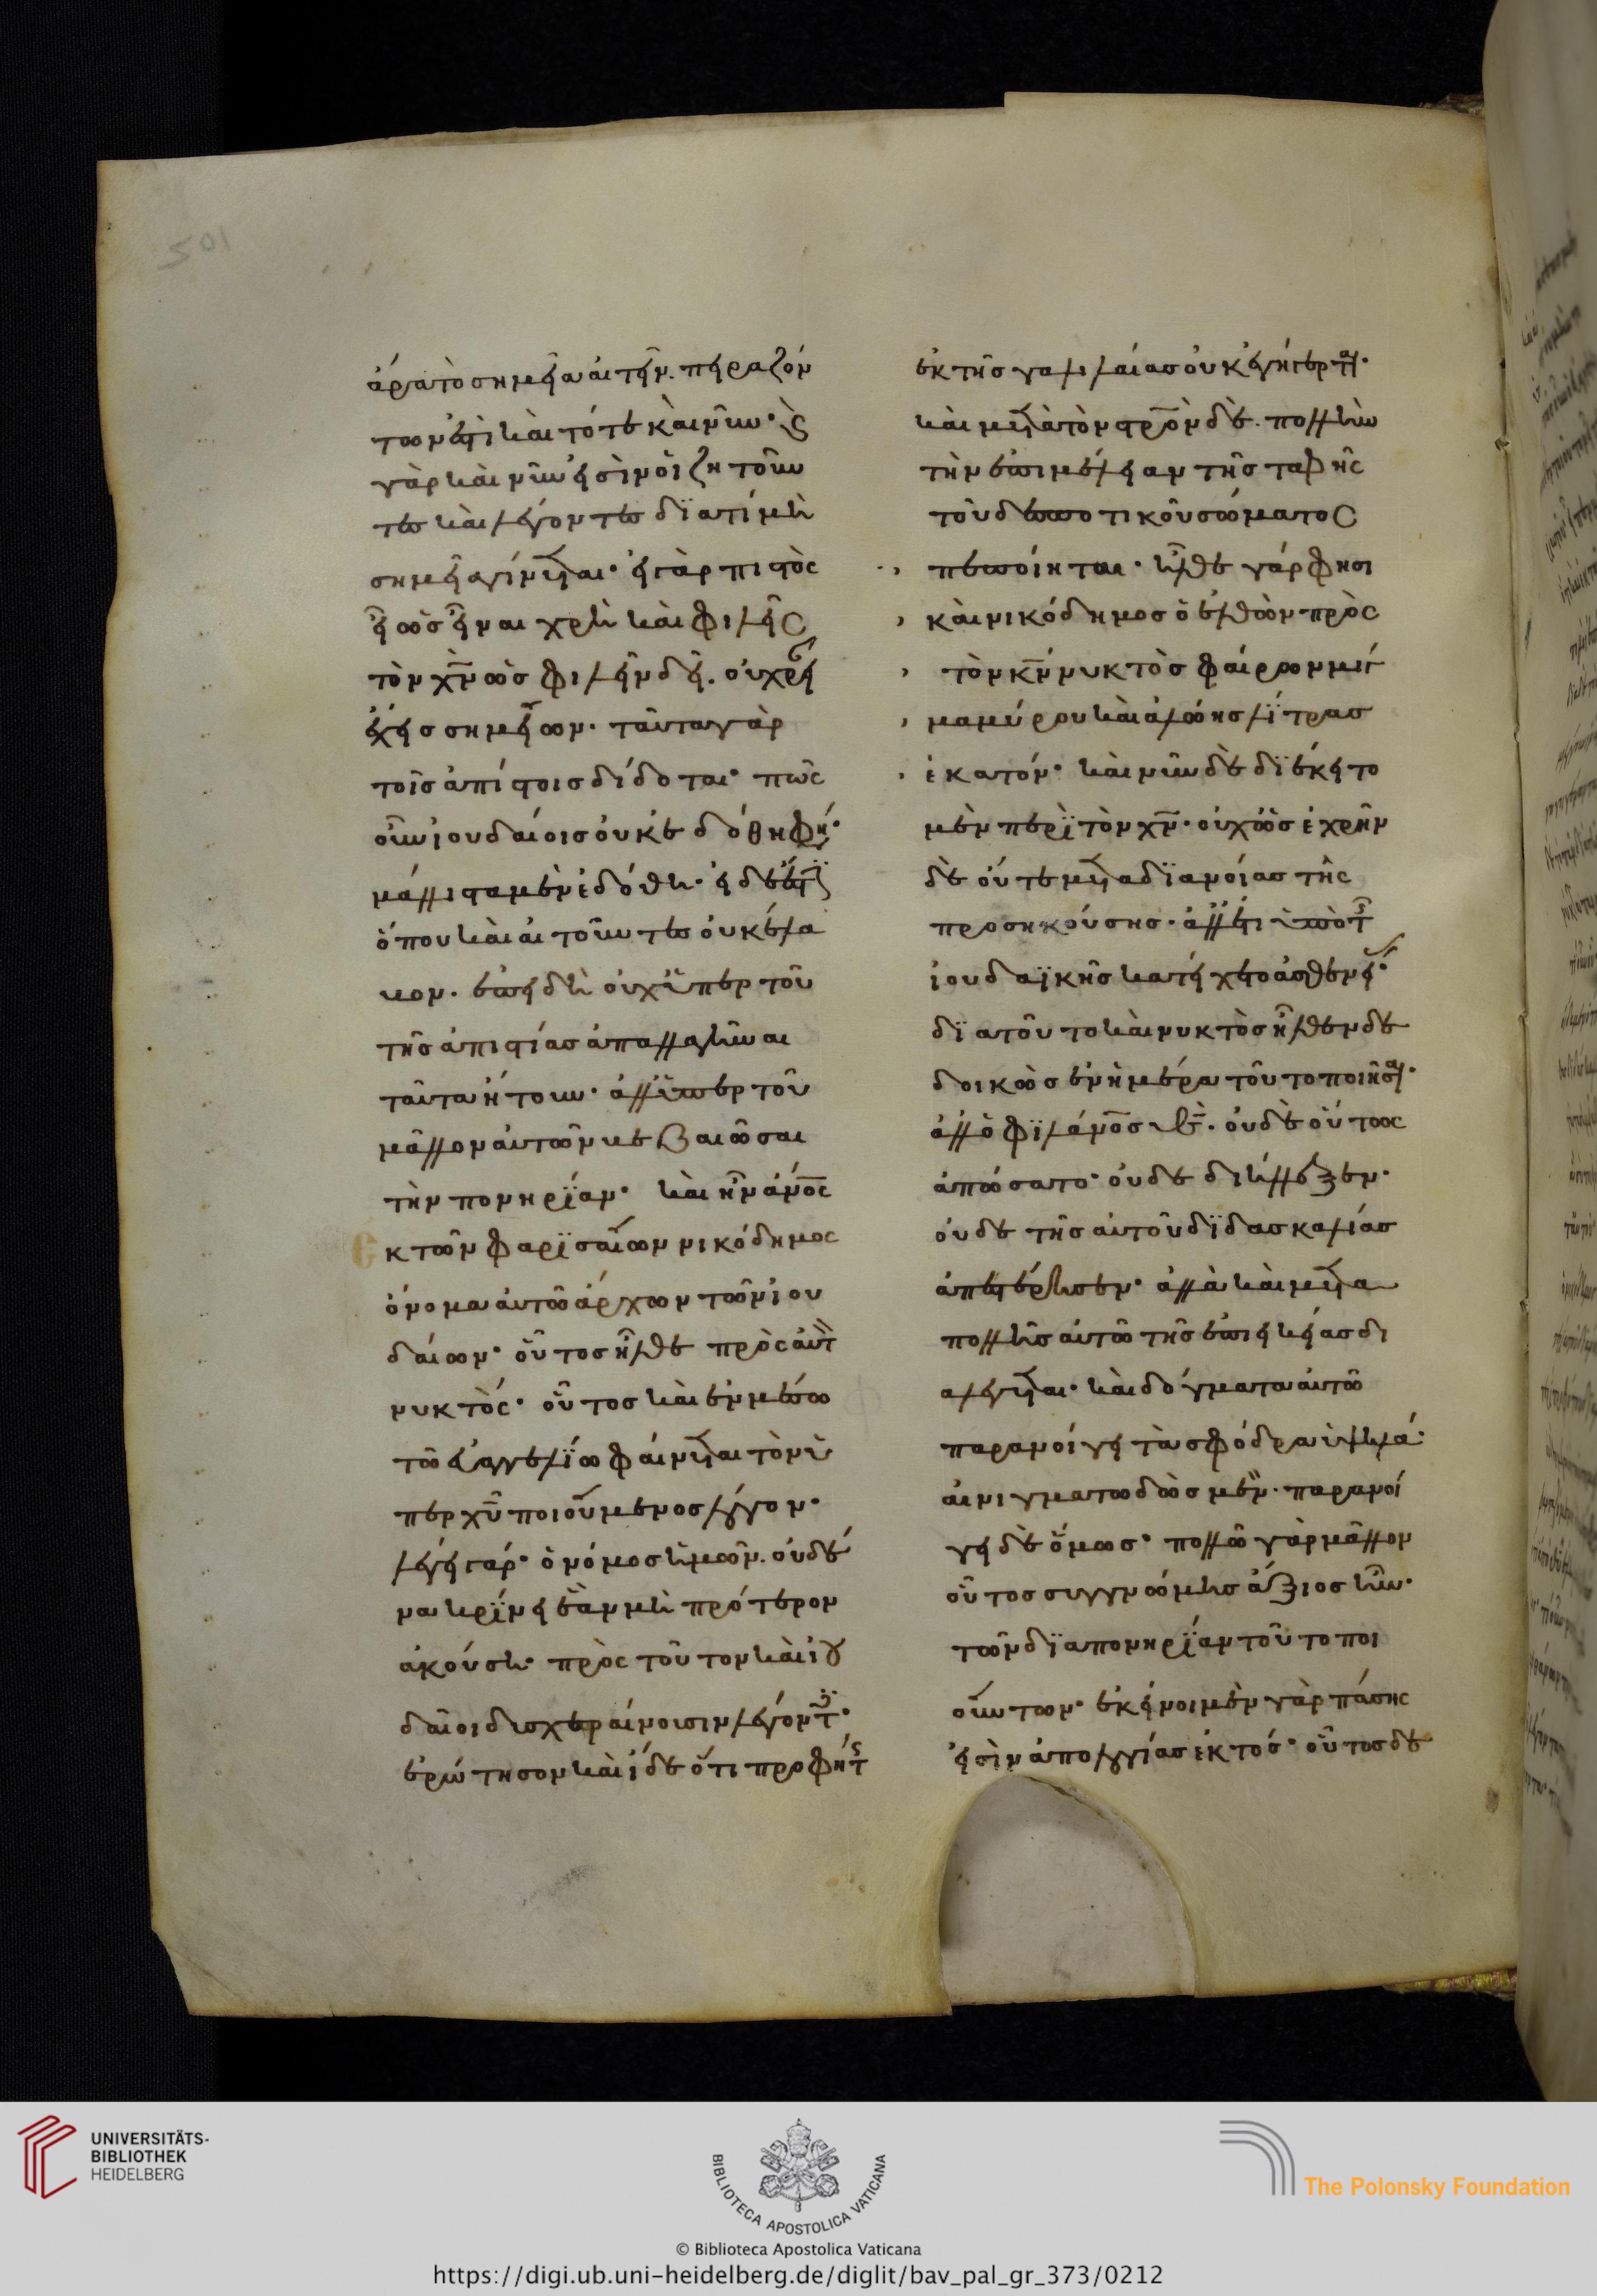 501
ἄρα τὸ σημεῖα αἰτεῖν. πειραζόν
των ἐστὶ καὶ τότε καὶ νῦν· καὶ
γὰρ καὶ νῦν εἰσὶν οἱ ζητοῦν
τες καὶ λέγοντες διατί μὴ
σημεῖα γίνεται· εἰ γὰρ πιστὸς
εἶ ὡς εἶναι χρὴ καὶ φιλεῖς
τὸν χν ὡς φιλεῖν δεῖ. οὐ χρείαν
ἔχεις σημείων. ταῦτα γὰρ
τοῖς ἀπίστοις δίδοται· πῶς
οὖν ἰουδαίοις οὐκ ἐδόθη φησί·
μάλιστα μὲν ἐδόθη· εἰ δὲ ἔστιν
ὅπου καὶ αἰτοῦντες οὐκ ἔλα
βον. ἐπειδὴ οὐχ ὑπὲρ τοῦ
τῆς ἀπιστίας ἀπαλλαγῆναι
ταῦτα ἤτουν· ἀλλ' ὑπὲρ τοῦ
μᾶλλον αὐτῶν βεβαιῶσαι
τὴν πονηρίαν· καὶ ἦν ἄνος
ἐκ τῶν φαρισαίων νικόδημος
ὄνομα αὐτῶ ἄρχων τῶν ἰου
δαίων· οὗτος ἦλθε πρὸς αὐτὸν
νυκτός· οὗτος καὶ ἐν μέσω
τῶ εὐαγγελίω φαίνεται τὸν ὑ
πὲρ χυ ποιούμενος λόγον·
λέγει γάρ· ὁ νόμος ἡμῶν. οὐδέ
να κρίνει ἐὰν μὴ πρότερον
ἀκούση· πρὸς τοῦτον καὶ ἰου
δαῖοι δυσχεραίνουσιν λέγοντες·
ἐρώτησον καὶ ἴδε ὅτι προφήτης
ἐκ τῆς γαλιλαίας οὐκ ἐγήγερται·
καὶ μετὰ τὸν στρον δὲ. πολλὴν
τὴν ἐπιμέλειαν τῆς ταφῆς
τοῦ δεσποτικοῦ σώματος
πεποίηται· ἦλθε γάρ φησι
καὶ νικόδημος ὁ ἐλθὼν πρὸς
τὸν κν νυκτὸς φέρων μίγ
μα μύρου καὶ ἀλόης λίτρας
ἑκατόν· καὶ νῦν δὲ διέκειτο
μὲν περὶ τὸν χν· οὐχ ὡς ἐχρῆν
δὲ οὔτε μετὰ διανοίας τῆς
προσηκούσης· ἀλλ' ἔτι ὑπὸ τῆς
ἰουδαϊκῆς κατείχετο ἀσθενείας·
διὰ τοῦτο καὶ νυκτὸς ἦλθεν δε
δοικὼς ἐν ἡμέρα τοῦτο ποιῆσαι·
ἀλλ' ὁ φιλάνος θς. οὐδὲ οὕτως
ἀπώσατο· οὐδὲ διήλλεγξεν·
οὐδὲ τῆς αὐτοῦ διδασκαλίας
ἀπεστέρησεν· ἀλλὰ καὶ μετὰ
πολλῆς αὐτῶ τῆς ἐπιεικείας δι
αλέγεται· καὶ δόγματα αὐτῶ
παρανοίγει τὰ σφόδρα ὑψηλά·
αἰνιγματωδῶς μὲν. παρανοί
γει δὲ ὅμως· πολλῶ γὰρ μᾶλλον
οὗτος συγγνώμης ἄξιος ἦν·
τῶν διὰ πονηρίαν τοῦτο ποι
ούντων· ἐκεῖνοι μὲν γὰρ πάσης
εἰσὶν ἀπολογίας ἐκτός· οὗτος δὲ
UNIVERSITÄTS-
BIBLIOTHEK
HEIDELBERG
BIBLIOTECA APOSTOLICA VATICANA
The Polonsky Foundation
© Biblioteca Apostolica Vaticana
https://digi.ub.uni-heidelberg.de/diglit/bav_pal_gr_373/0212